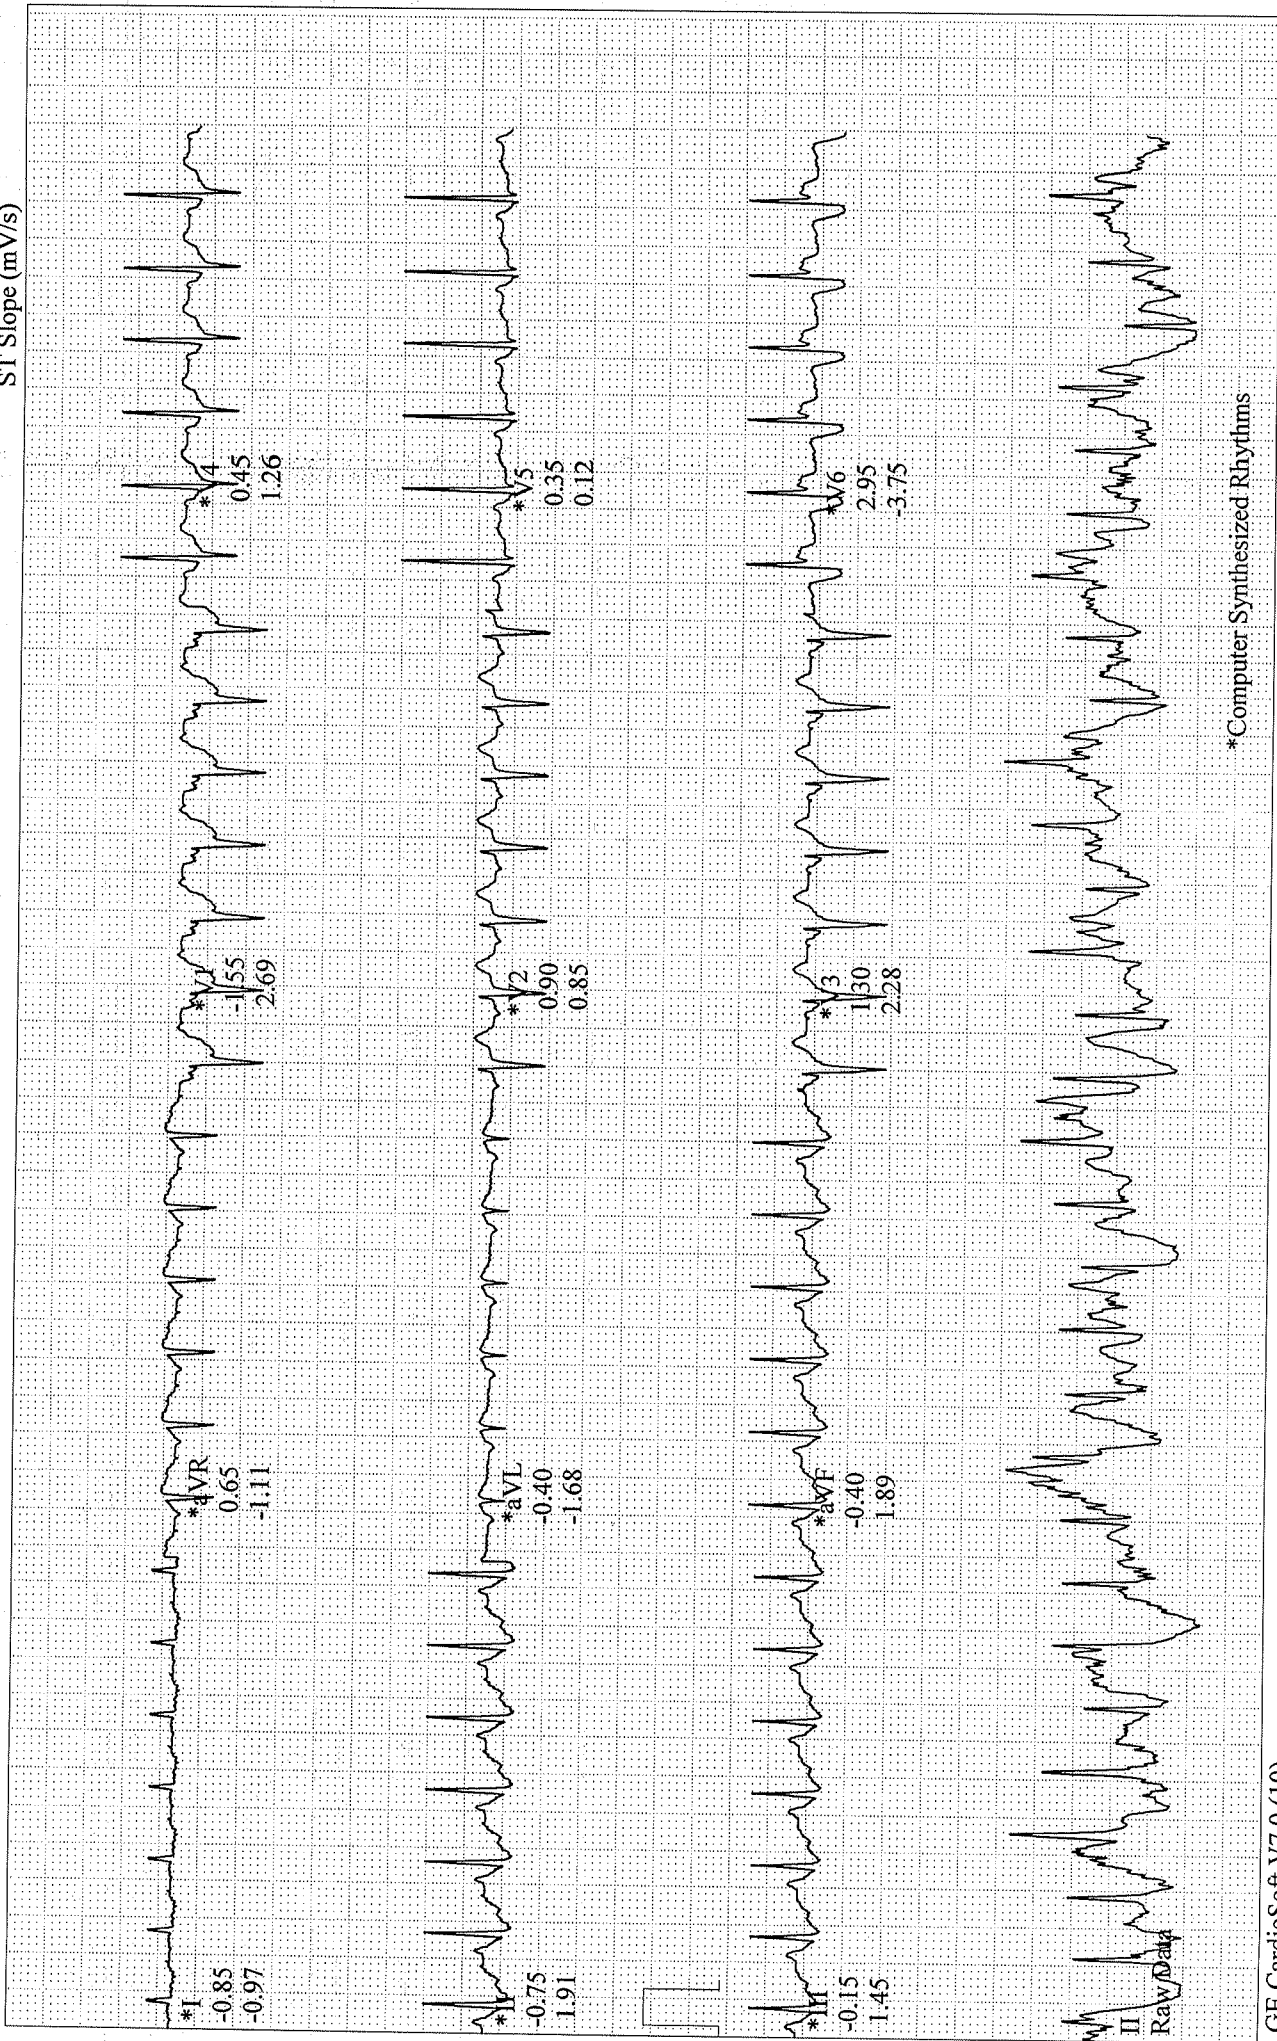 ST Slope (mV/s)
*I
-0.85
-0.97
*aVR
0.65
-1.11
*V1
-1.55
2.69
*V4
0.45
1.26
*II
-0.75
1.91
*aVL
-0.40
-1.68
*V2
0.90
0.85
*V5
0.35
0.12
*III
-0.15
1.45
*aVF
-0.40
1.89
*V3
1.30
2.28
*V6
2.95
-3.75
II
Raw Data
*Computer Synthesized Rhythms
GE CardioSoft V7.0 (10)